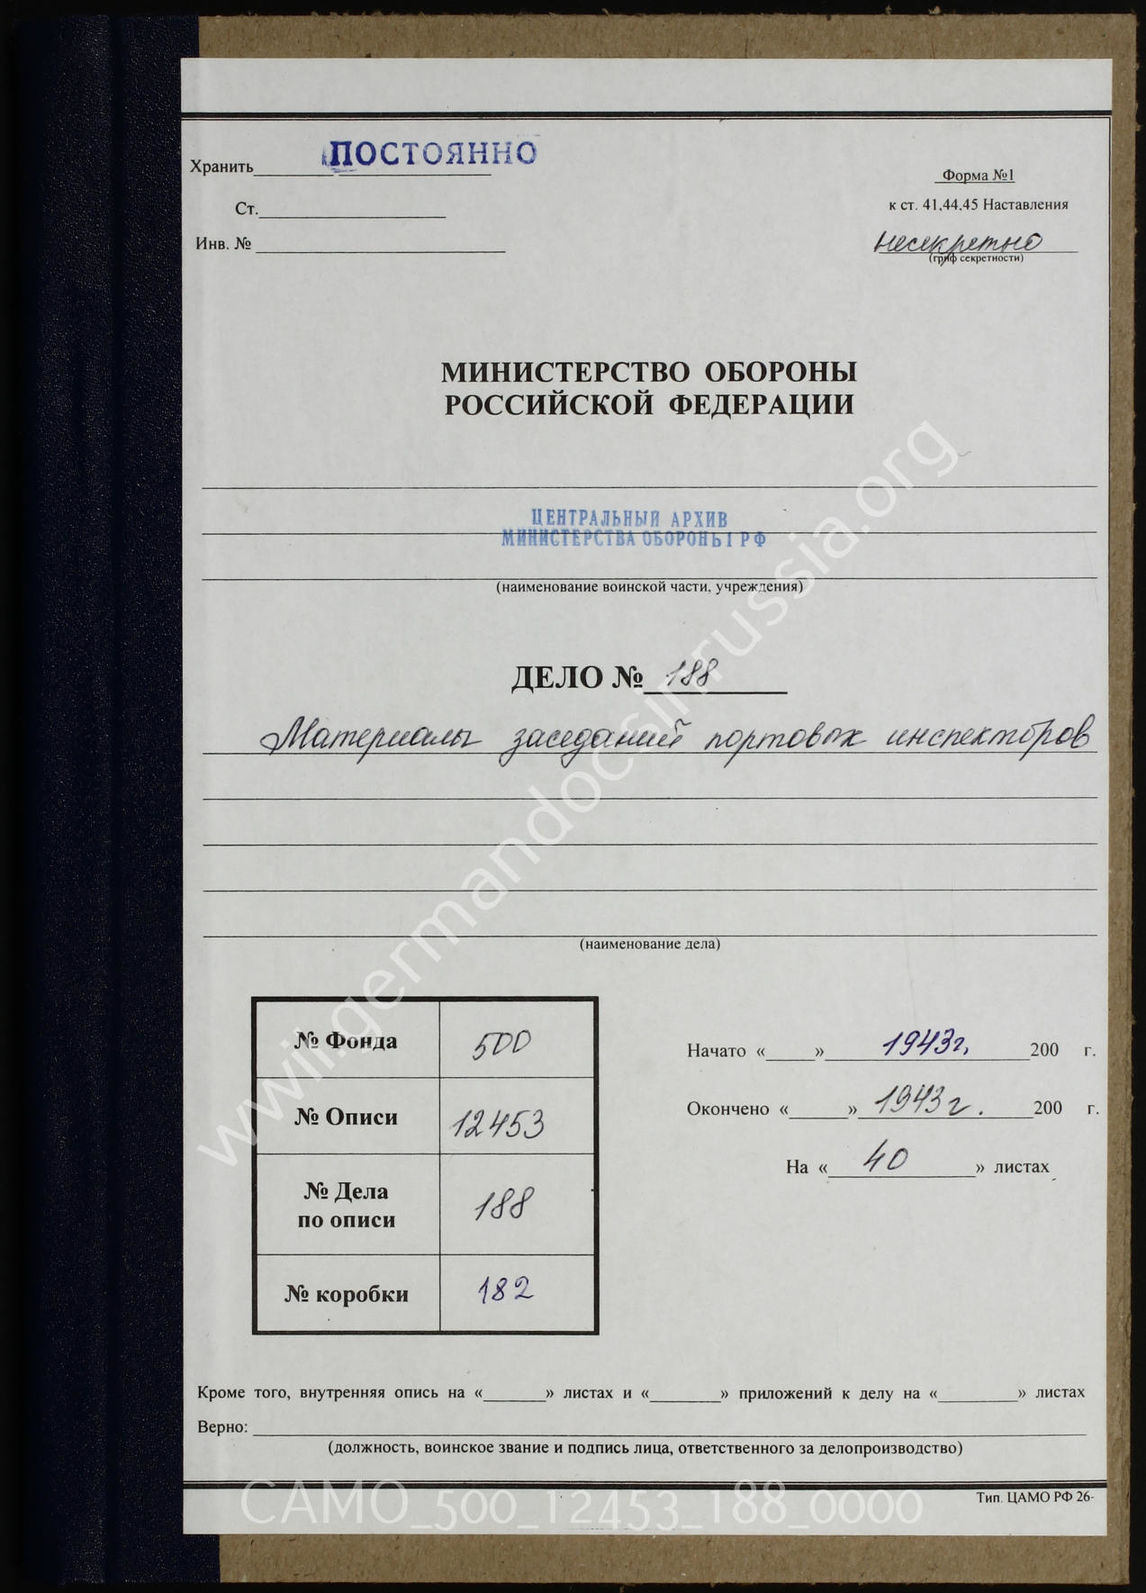 Хранить ПОСТОЯННО
Форма №1
Ст.
к ст. 41,44,45 Наставления
Инв. №
несекретно
(гриф секретности)
МИНИСТЕРСТВО ОБОРОНЫ
РОССИЙСКОЙ ФЕДЕРАЦИИ
ЦЕНТРАЛЬНЫЙ АРХИВ
МИНИСТЕРСТВА ОБОРОНЫ РФ
(наименование воинской части, учреждения)
ДЕЛО № 188
Материалы заседаний портовых инспекторов
(наименование дела)
№ Фонда 500
№ Описи 12453
№ Дела
по описи 188
№ коробки 182
Начато « » 1943г. 200 г.
Окончено « » 1943г. 200 г.
На « 40 » листах
Кроме того, внутренняя опись на « » листах и « » приложений к делу на « » листах
Верно:
(должность, воинское звание и подпись лица, ответственного за делопроизводство)
Тип. ЦАМО РФ 26-
CAMO_500_12453_188_0000
wwii.germandocsinrussia.org